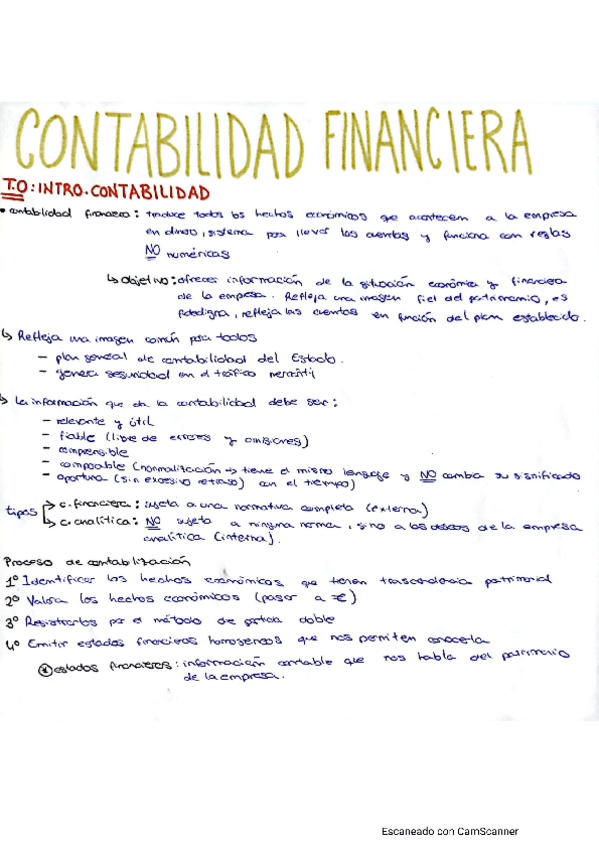 CONTABILIDAD FINANCIERA
T.0: INTRO. CONTABILIDAD
• contabilidad financiera: traduce todos los hechos económicos que acontecen a la empresa
en dinero, sistema para llevar las cuentas y funciona con reglas
NO numéricas
↳ objetivo: ofrecer información de la situación económica y financiera
de la empresa. Refleja una imagen fiel del patrimonio, es
fidedigna, refleja las cuentas en función del plan establecido.
↳ Refleja una imagen común para todos
- plan general de contabilidad del Estado.
- genera seguridad en el tráfico mercantil
↳ La información que da la contabilidad debe ser:
- relevante y útil
- fiable (libre de errores y omisiones)
- comprensible
- comparable (normalización → tiene el mismo lenguaje y NO cambia su significado
- oportuna (sin excesivo retraso) con el tiempo)
tipos
↳ c. financiera: sujeta a una normativa completa (externa)
↳ c. analítica: NO sujeta a ninguna norma, sino a los deseos de la empresa
analítica (interna).
Proceso de contabilización
1º Identificar los hechos económicos que tienen trascendencia patrimonial
2º Valorar los hechos económicos (pasar a €)
3º Registrarlos por el método de partida doble
4º Emitir estados financieros homogéneos que nos permiten conocerla
* estados financieros: información contable que nos habla del patrimonio
de la empresa.
Escaneado con CamScanner